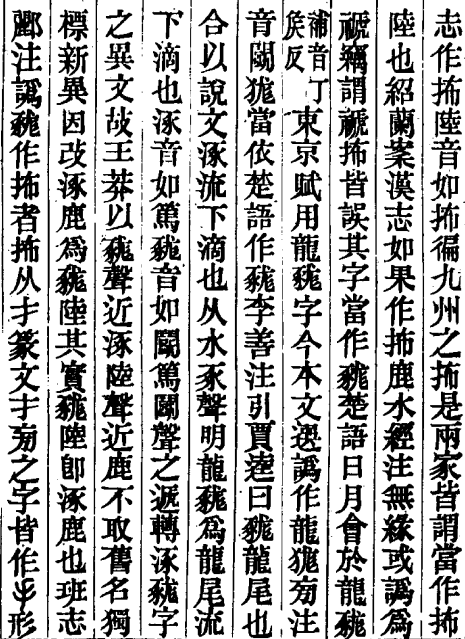 志作抪陸音如抪徧九州之抪是兩家皆謂當作抪
陸也紹蘭案漢志如果作抪鹿水經注無緣或譌爲
褫䊵謂褫抪皆誤其字當作㹿楚語日月會於龍㹿
補音丁矦反東京賦用龍㹿字今本文選譌作龍狵旁注
音鬭狵當依楚語作㹿李善注引賈逵曰㹿龍尾也
合以說文涿流下滴也从水豖聲明龍㹿爲龍尾流
下滴也涿音如篤㹿音如鬭篤鬭聲之遞轉涿㹿字
之異文故王莽以㹿聲近涿陸聲近鹿不取舊名獨
標新異因改涿鹿爲㹿陸其實㹿陸卽涿鹿也班志
酈注譌㹿作抪者抪从才篆文才旁之字皆作𠂿形